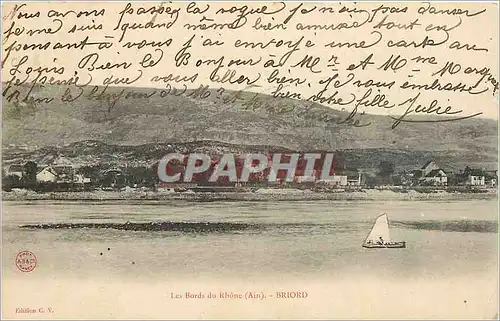 Nous avons passer la vogue Je n'ai pas danser
je me suis quand même bien amusé tout en
pensant à vous j'ai envoyé une carte au
Louis Bien le Bonjour à Mr et Mme
Je pense que vous aller bien. Je vous embrasse
Bien le Bonjour de Mr et Mme bien votre fille Julie
CPAPHIL
Les Bords du Rhône (Ain). - BRIORD
Edition C. V.